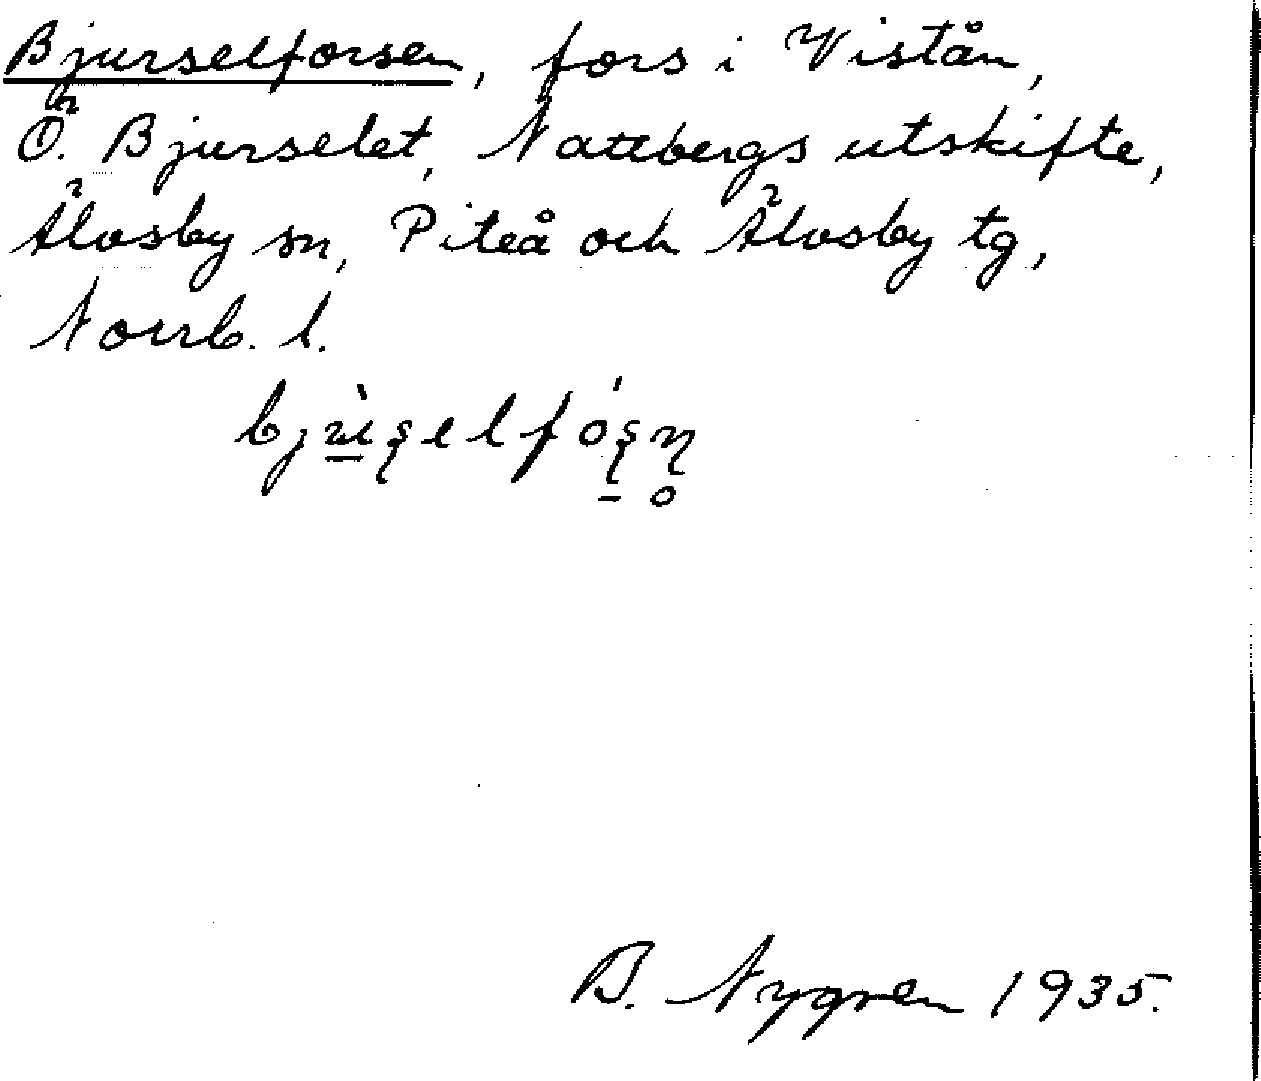 Bjurselforsen, fors i Vistån,
Ö. Bjurselet, Nattbergs utskifte,
Älvsby sn, Piteå och Älvsby tg,
Norrb. l.
B. Nygren 1935.